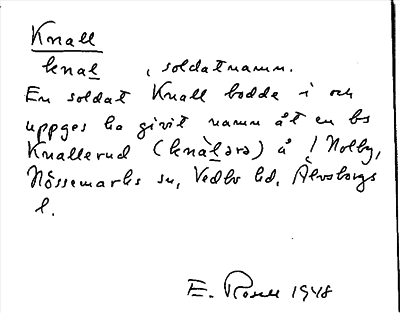 Knall
knal , soldatnamn.
En soldat Knall bodde i och
uppges ha givit namn åt en bs
Knallerud (knàlərə) å 1 Holby,
Nössemarks sn, Vedbo hd, Älvsborgs
l.
E. Rosell 1948